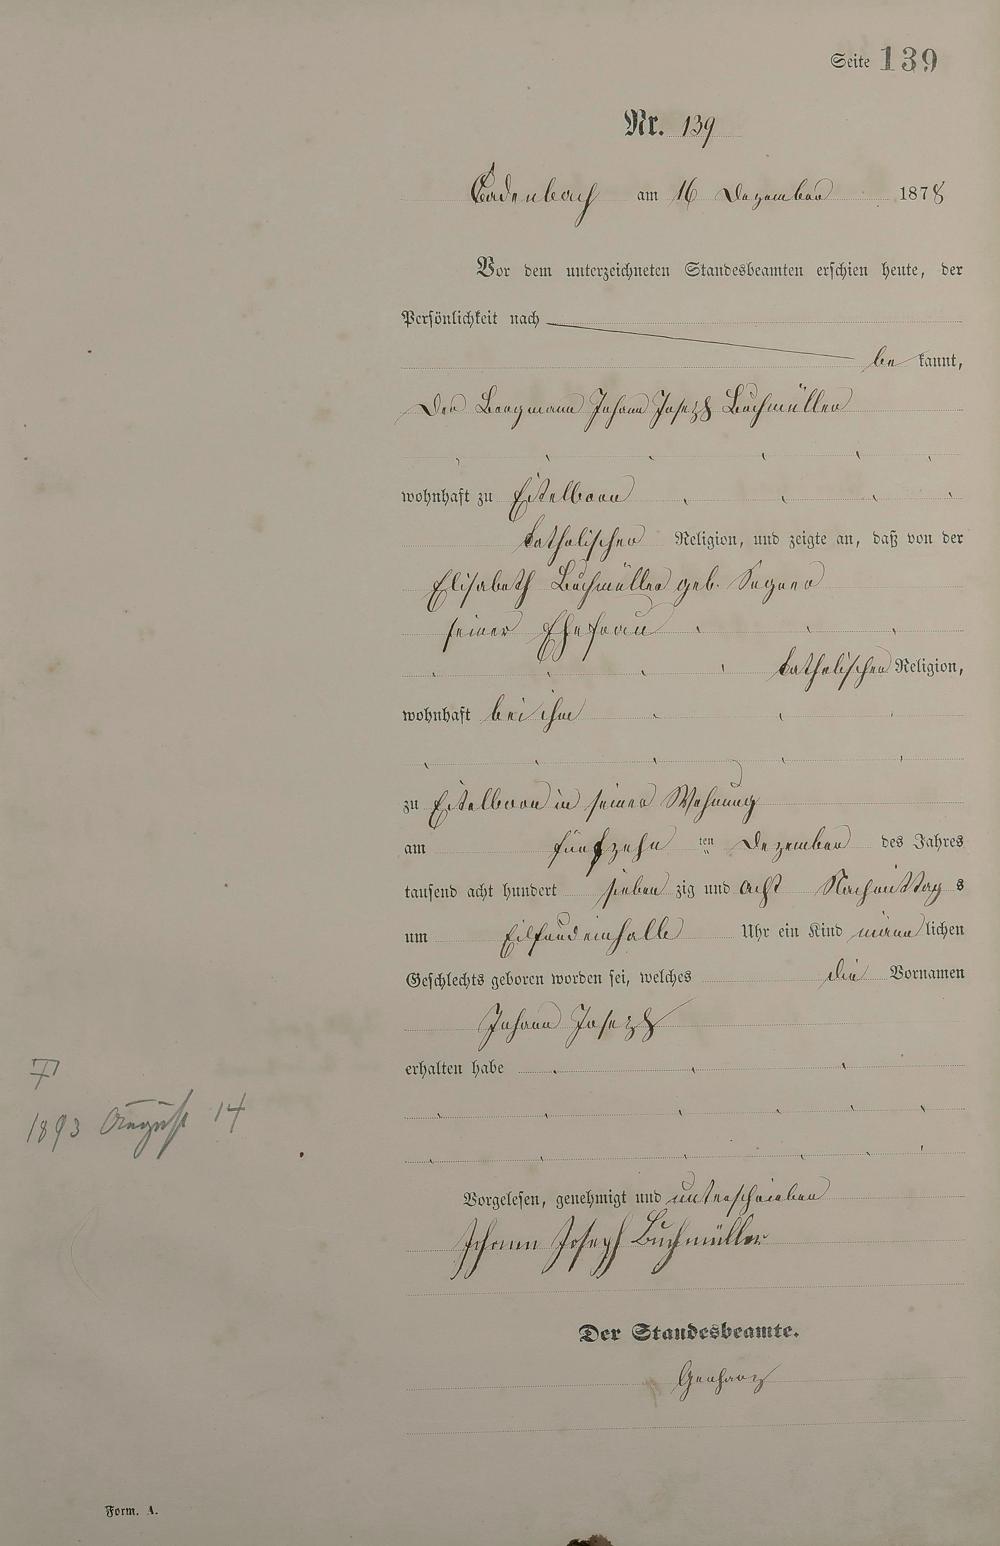 Seite 139
Nr. 139
Cadenbach am 16 Dezember 1878
Vor dem unterzeichneten Standesbeamten erschien heute, der
Persönlichkeit nach
be kannt,
Der Bergmann Johann Joseph Buchmüller
wohnhaft zu Eitelborn
katholischer Religion, und zeigte an, daß von der
Elisabeth Buchmüller geb.
seiner Ehefrau
katholischer Religion,
wohnhaft bei ihm
zu Eitelborn in seiner Wohnung
am fünfzehn ten Dezember des Jahres
tausend acht hundert sieben zig und acht Nachmittag s
um Eilfundeinhalb Uhr ein Kind männ lichen
Geschlechts geboren worden sei, welches die Vornamen
Johann Joseph
erhalten habe
†
1893 August 14
Vorgelesen, genehmigt und unterschrieben
Johann Joseph Buchmüller
Der Standesbeamte.
Form. A.